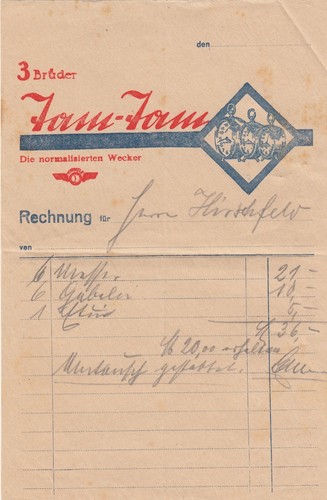 den
3 Brüder
Tam-Tam
Die normalisierten Wecker
Rechnung für Herrn Hirschfeld
von
6 Messer 21 -
6 Gabeln 10 -
1 Etui 5 -
S 36 -
S 20,00 erhalten
Umtausch gestattet.